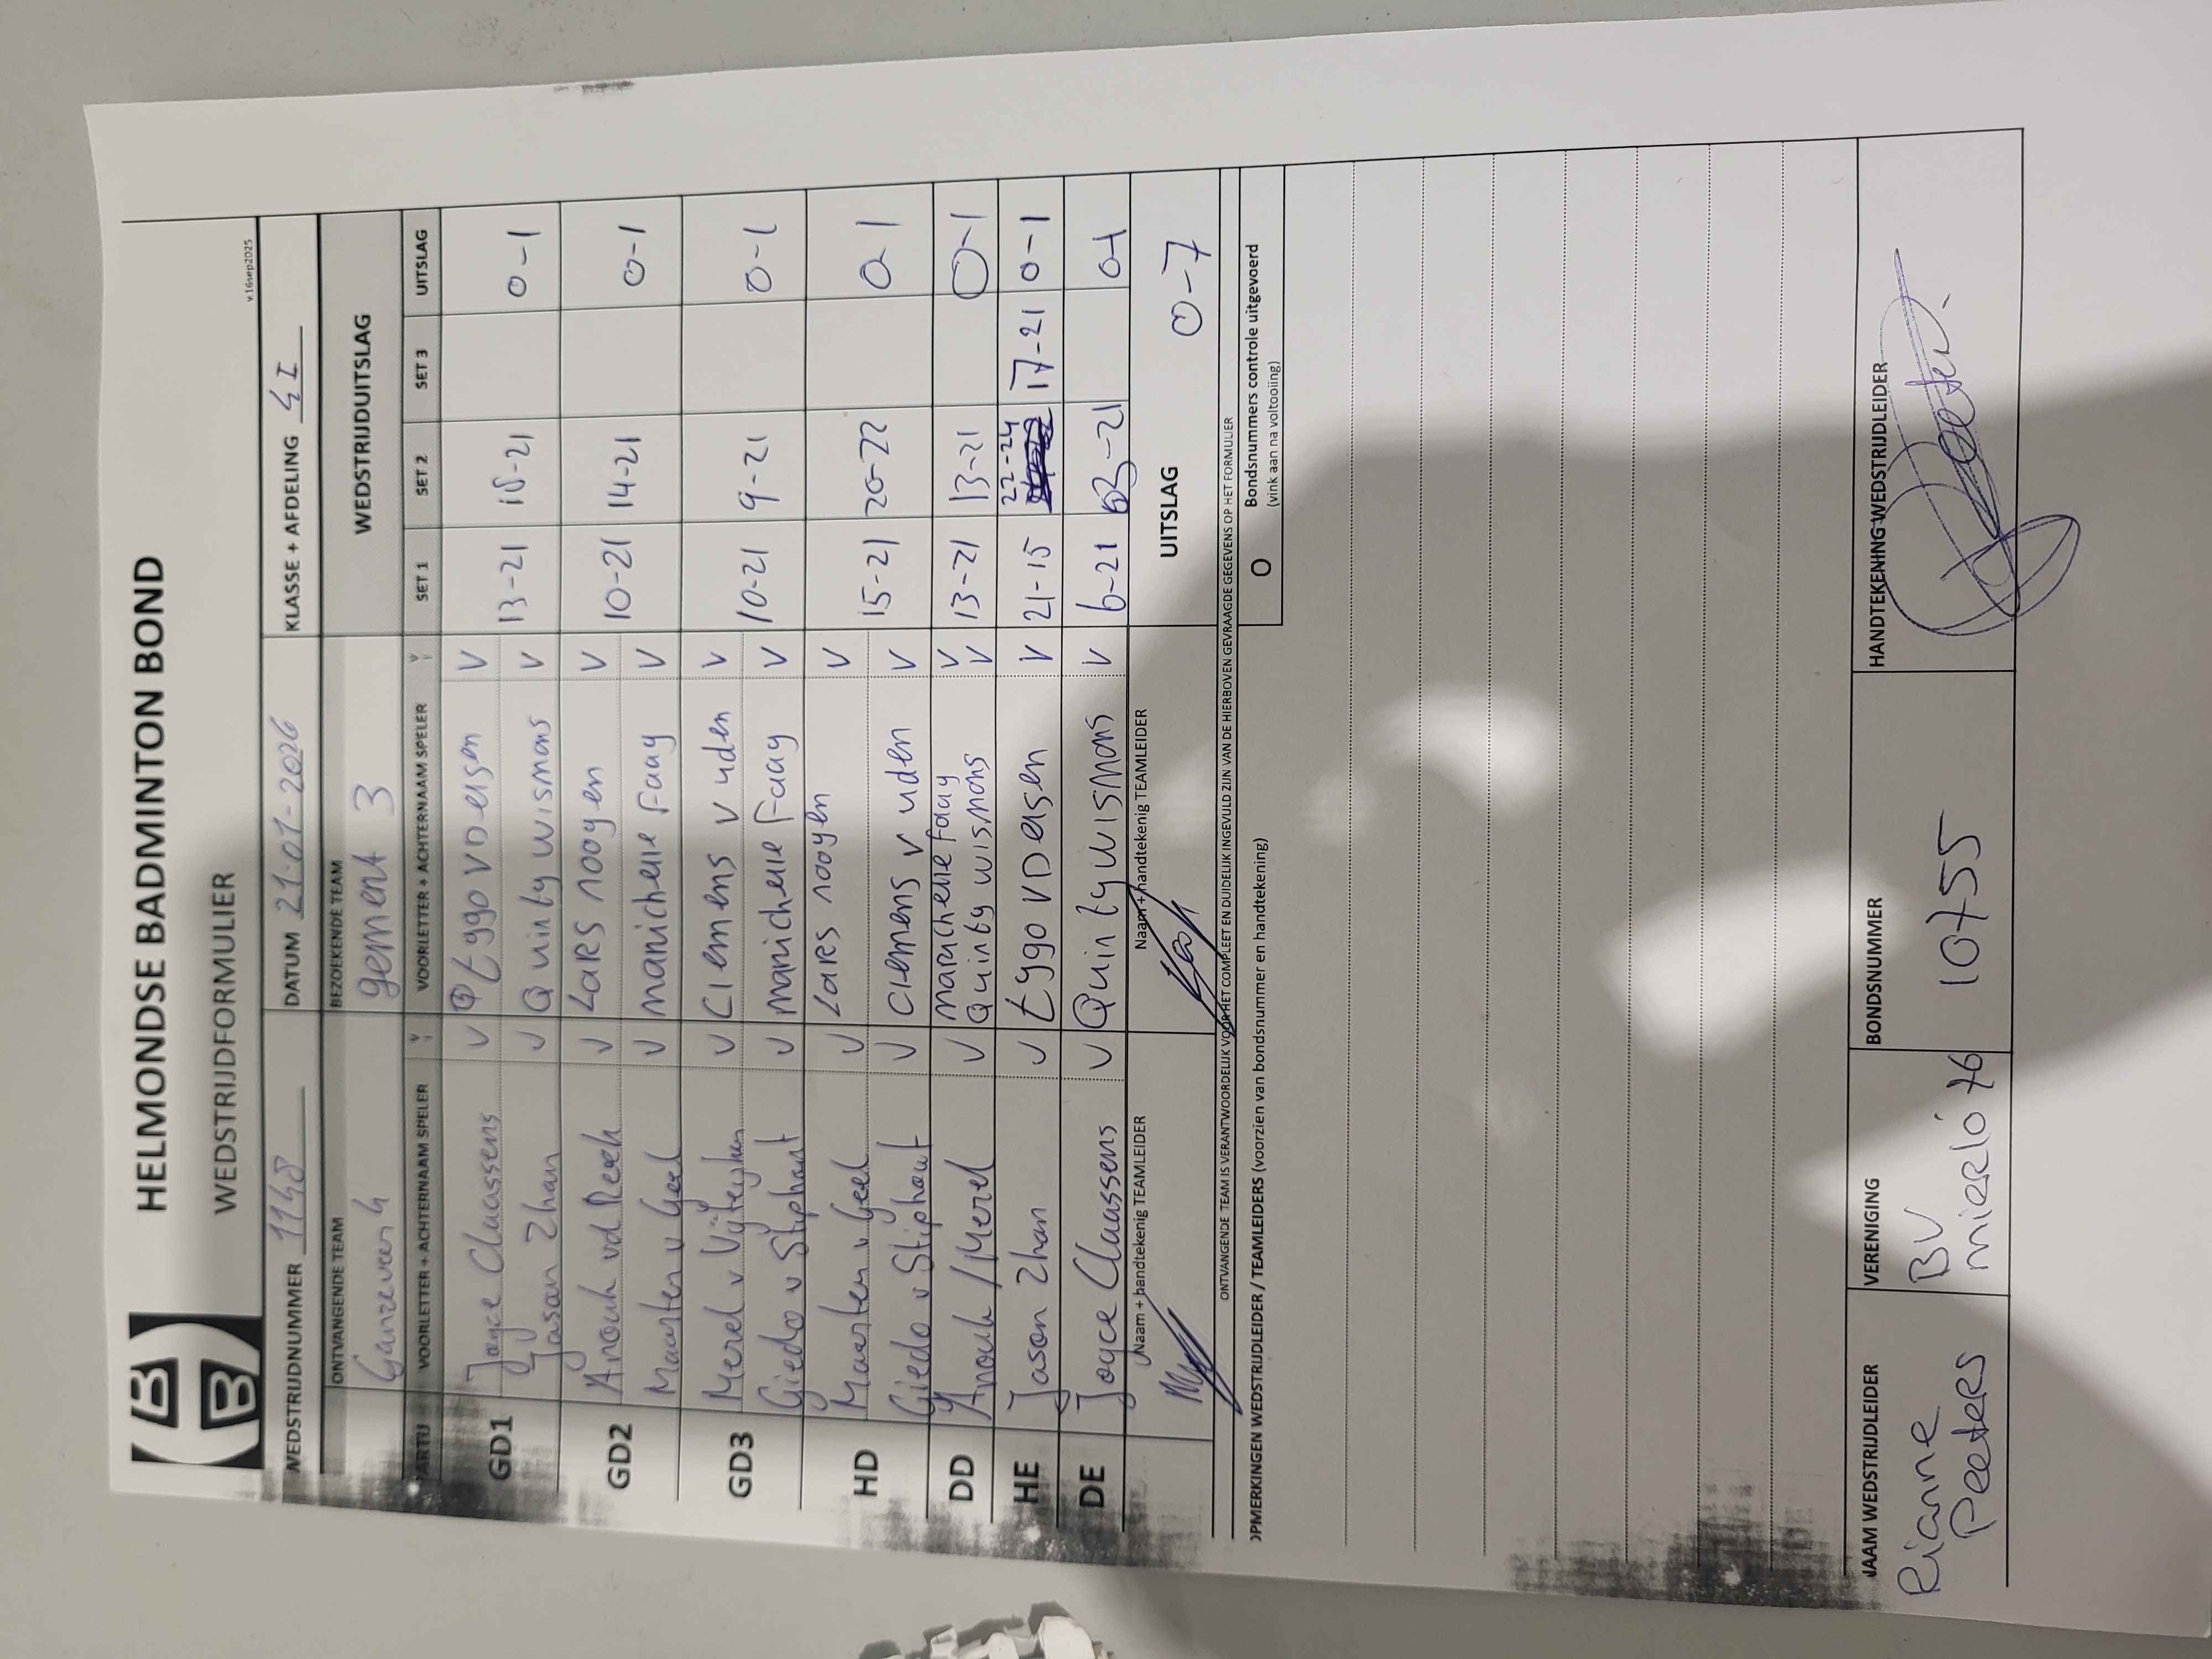 HELMONDSE BADMINTON BOND
WEDSTRIJDFORMULIER
v.16sep2025
WEDSTRIJDNUMMER 1148 DATUM 21-01-2026 KLASSE + AFDELING 4 I
ONTVANGENDE TEAM BEZOEKENDE TEAM WEDSTRIJDUITSLAG
Ganzeveer 4 gement 3
PARTIJ VOORLETTER + ACHTERNAAM SPELER V VOORLETTER + ACHTERNAAM SPELER V SET 1 SET 2 SET 3 UITSLAG
GD1 Joyce Claassens V Eggo VD eisen V
Jason Zhan V Quinty wismans V 13-21 15-21 0-1
GD2 Anouk vd V Lars nooyen V
Maarten v Geel V manichelle Faay V 10-21 14-21 0-1
GD3 Merel v V Clemens v uden V
Giedo v Stiphout V manichelle Faay V 10-21 9-21 0-1
HD Maarten v Geel V Lars nooyen V
Giedo v Stiphout V Clemens v uden V 15-21 20-22 0-1
DD Anouk / Merel V manichelle Faay V
Quinty wismans V 13-21 13-21 0-1
HE Jason Zhan V Eggo VD eisen V 21-15 22-24 17-21 0-1
DE Joyce Claassens V Quinty wismans V 6-21 -21 0-1
Naam + handtekenig TEAMLEIDER Naam + handtekenig TEAMLEIDER UITSLAG 0-7
ONTVANGENDE TEAM IS VERANTWOORDELIJK VOOR HET COMPLEET EN DUIDELIJK INGEVULD ZIJN VAN DE HIERBOVEN GEVRAAGDE GEGEVENS OP HET FORMULIER
OPMERKINGEN WEDSTRIJDLEIDER / TEAMLEIDERS (voorzien van bondsnummer en handtekening) O Bondsnummers controle uitgevoerd
(vink aan na voltooiing)
NAAM WEDSTRIJDLEIDER VERENIGING BONDSNUMMER HANDTEKENING WEDSTRIJDLEIDER
Rianne BV 10755
Peeters mierlo 76